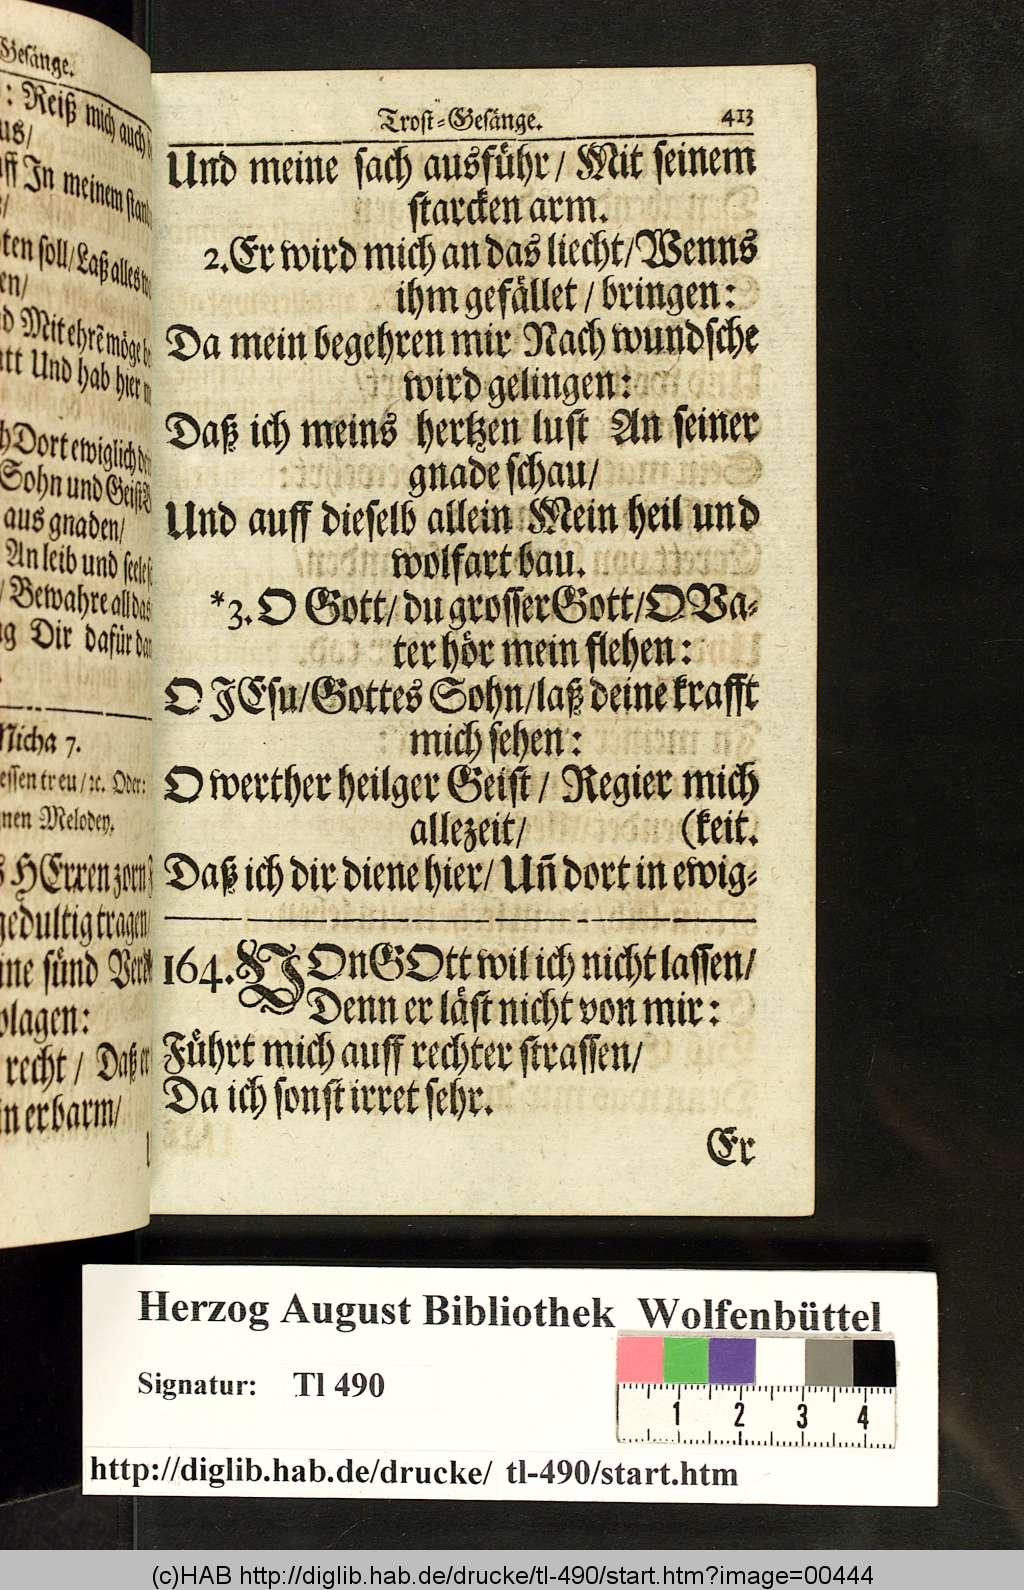 Gesänge.
: Reiß mich auch
us/
ff In meinem stan
ten soll/ Laß alles
en/
d Mit ehrẽ möge
tt Und hab hier
Dort ewiglich
Sohn und Geist
aus gnaden/
An leib und seele
/ Bewahre all das
g Dir dafür dan
Micha 7.
essen treu/ ꝛc. Oder:
nen Melodey.
s HErren zorn
gedultig tragen/
ine sünd Verd
plagen:
recht / Daß er
in erbarm/
U
Trost-Gesänge. 413
Und meine sach ausführ/ Mit seinem
starcken arm.
2. Er wird mich an das liecht/ Wenns
ihm gefället / bringen:
Da mein begehren mir Nach wundsche
wird gelingen:
Daß ich meins hertzen lust An seiner
gnade schau/
Und auff dieselb allein Mein heil und
wolfart bau.
*3. O Gott/ du grosser Gott/ O Va-
ter hör mein flehen:
O JEsu/ Gottes Sohn/ laß deine krafft
mich sehen:
O werther heilger Geist / Regier mich
allezeit/ (keit.
Daß ich dir diene hier/ Uñ dort in ewig-
164. VOn GOtt wil ich nicht lassen/
Denn er läst nicht von mir:
Führt mich auff rechter strassen/
Da ich sonst irret sehr.
Er
Herzog August Bibliothek Wolfenbüttel
Signatur: Tl 490
1 2 3 4
http://diglib.hab.de/drucke/ tl-490/start.htm
(c)HAB http://diglib.hab.de/drucke/tl-490/start.htm?image=00444